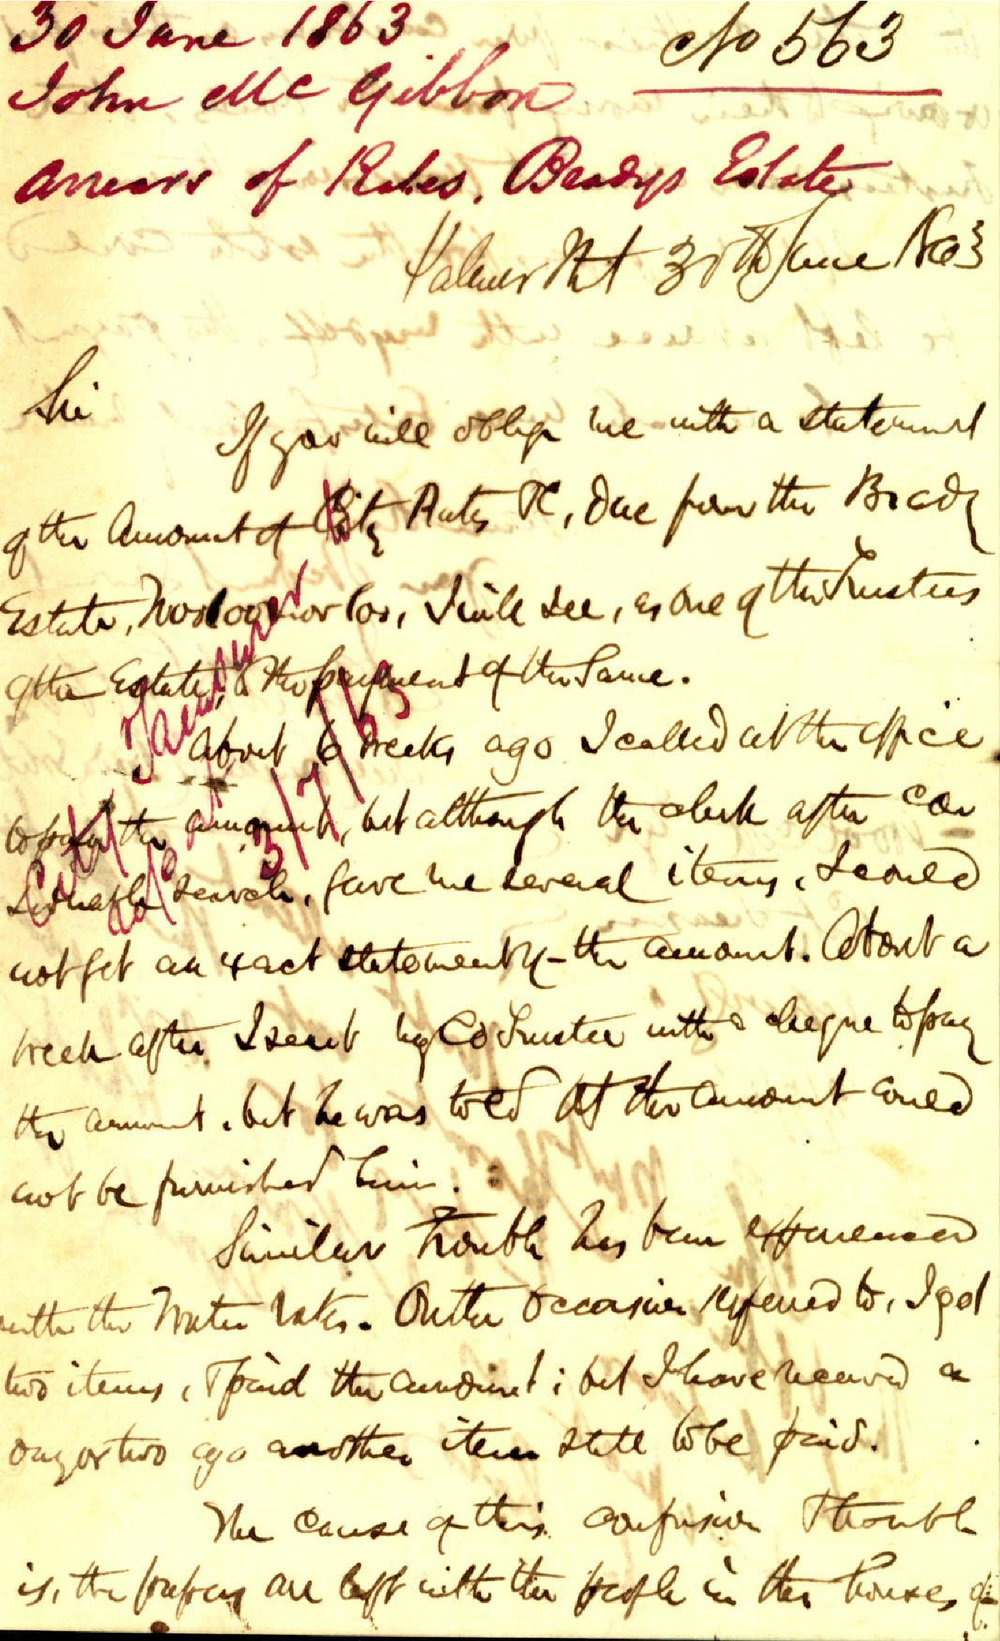 30 June 1863
No 563
John McGibbon
Arrears of Rates, Bradys Estate
30th June 1863
Sir
If you will oblige me with a statement
of the Amount of City Rates &c, due from the Brady
Estate, I will see, as one of the Trustees
of the Estate, to the payment of the Same.
About 6 weeks ago I called at the office
to pay the amount, but although the clerk after con
siderable search, gave me several items, I could
not get an exact statement of the amount. About a
week after I sent my CoTrustee with a cheque to pay
the amount, but he was told that the amount could
not be furnished him.
Similar trouble has been experienced
with the Water rates. On the occasion referred to, I got
two items, & paid the amount; but I have received a
day or two ago another item still to be paid.
The cause of this confusion & trouble
is, the papers are left with the people in the houses,
City Treasurer
3/7/63